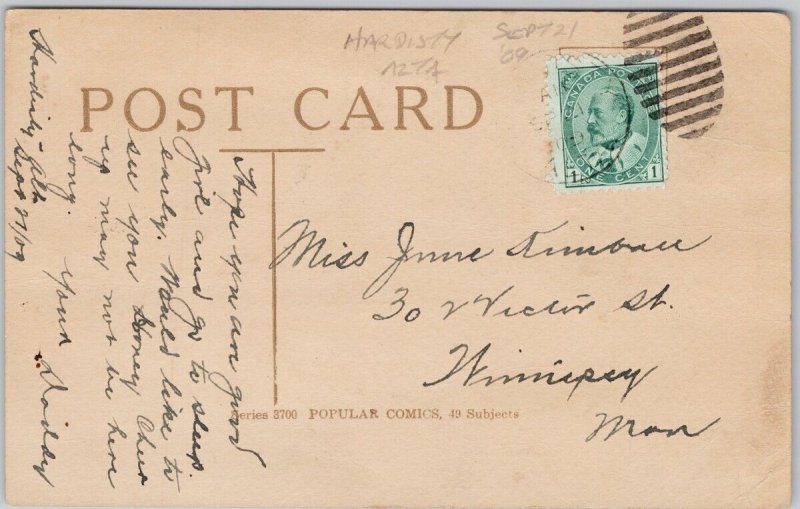 HARDISTY SEPT 21
ALTA '09
POST CARD
CANADA POSTAGE
ONE CENT
1 1
Hardisty - Alta
Sept 21/09
Hope you are good
girl and go to sleep
early. Would like to
see you Honey Cheer
up may not be here
long. Your Daddy
Miss June Kimball
302 Victor St.
Winnipeg
Man
Series 3700 POPULAR COMICS, 49 Subjects